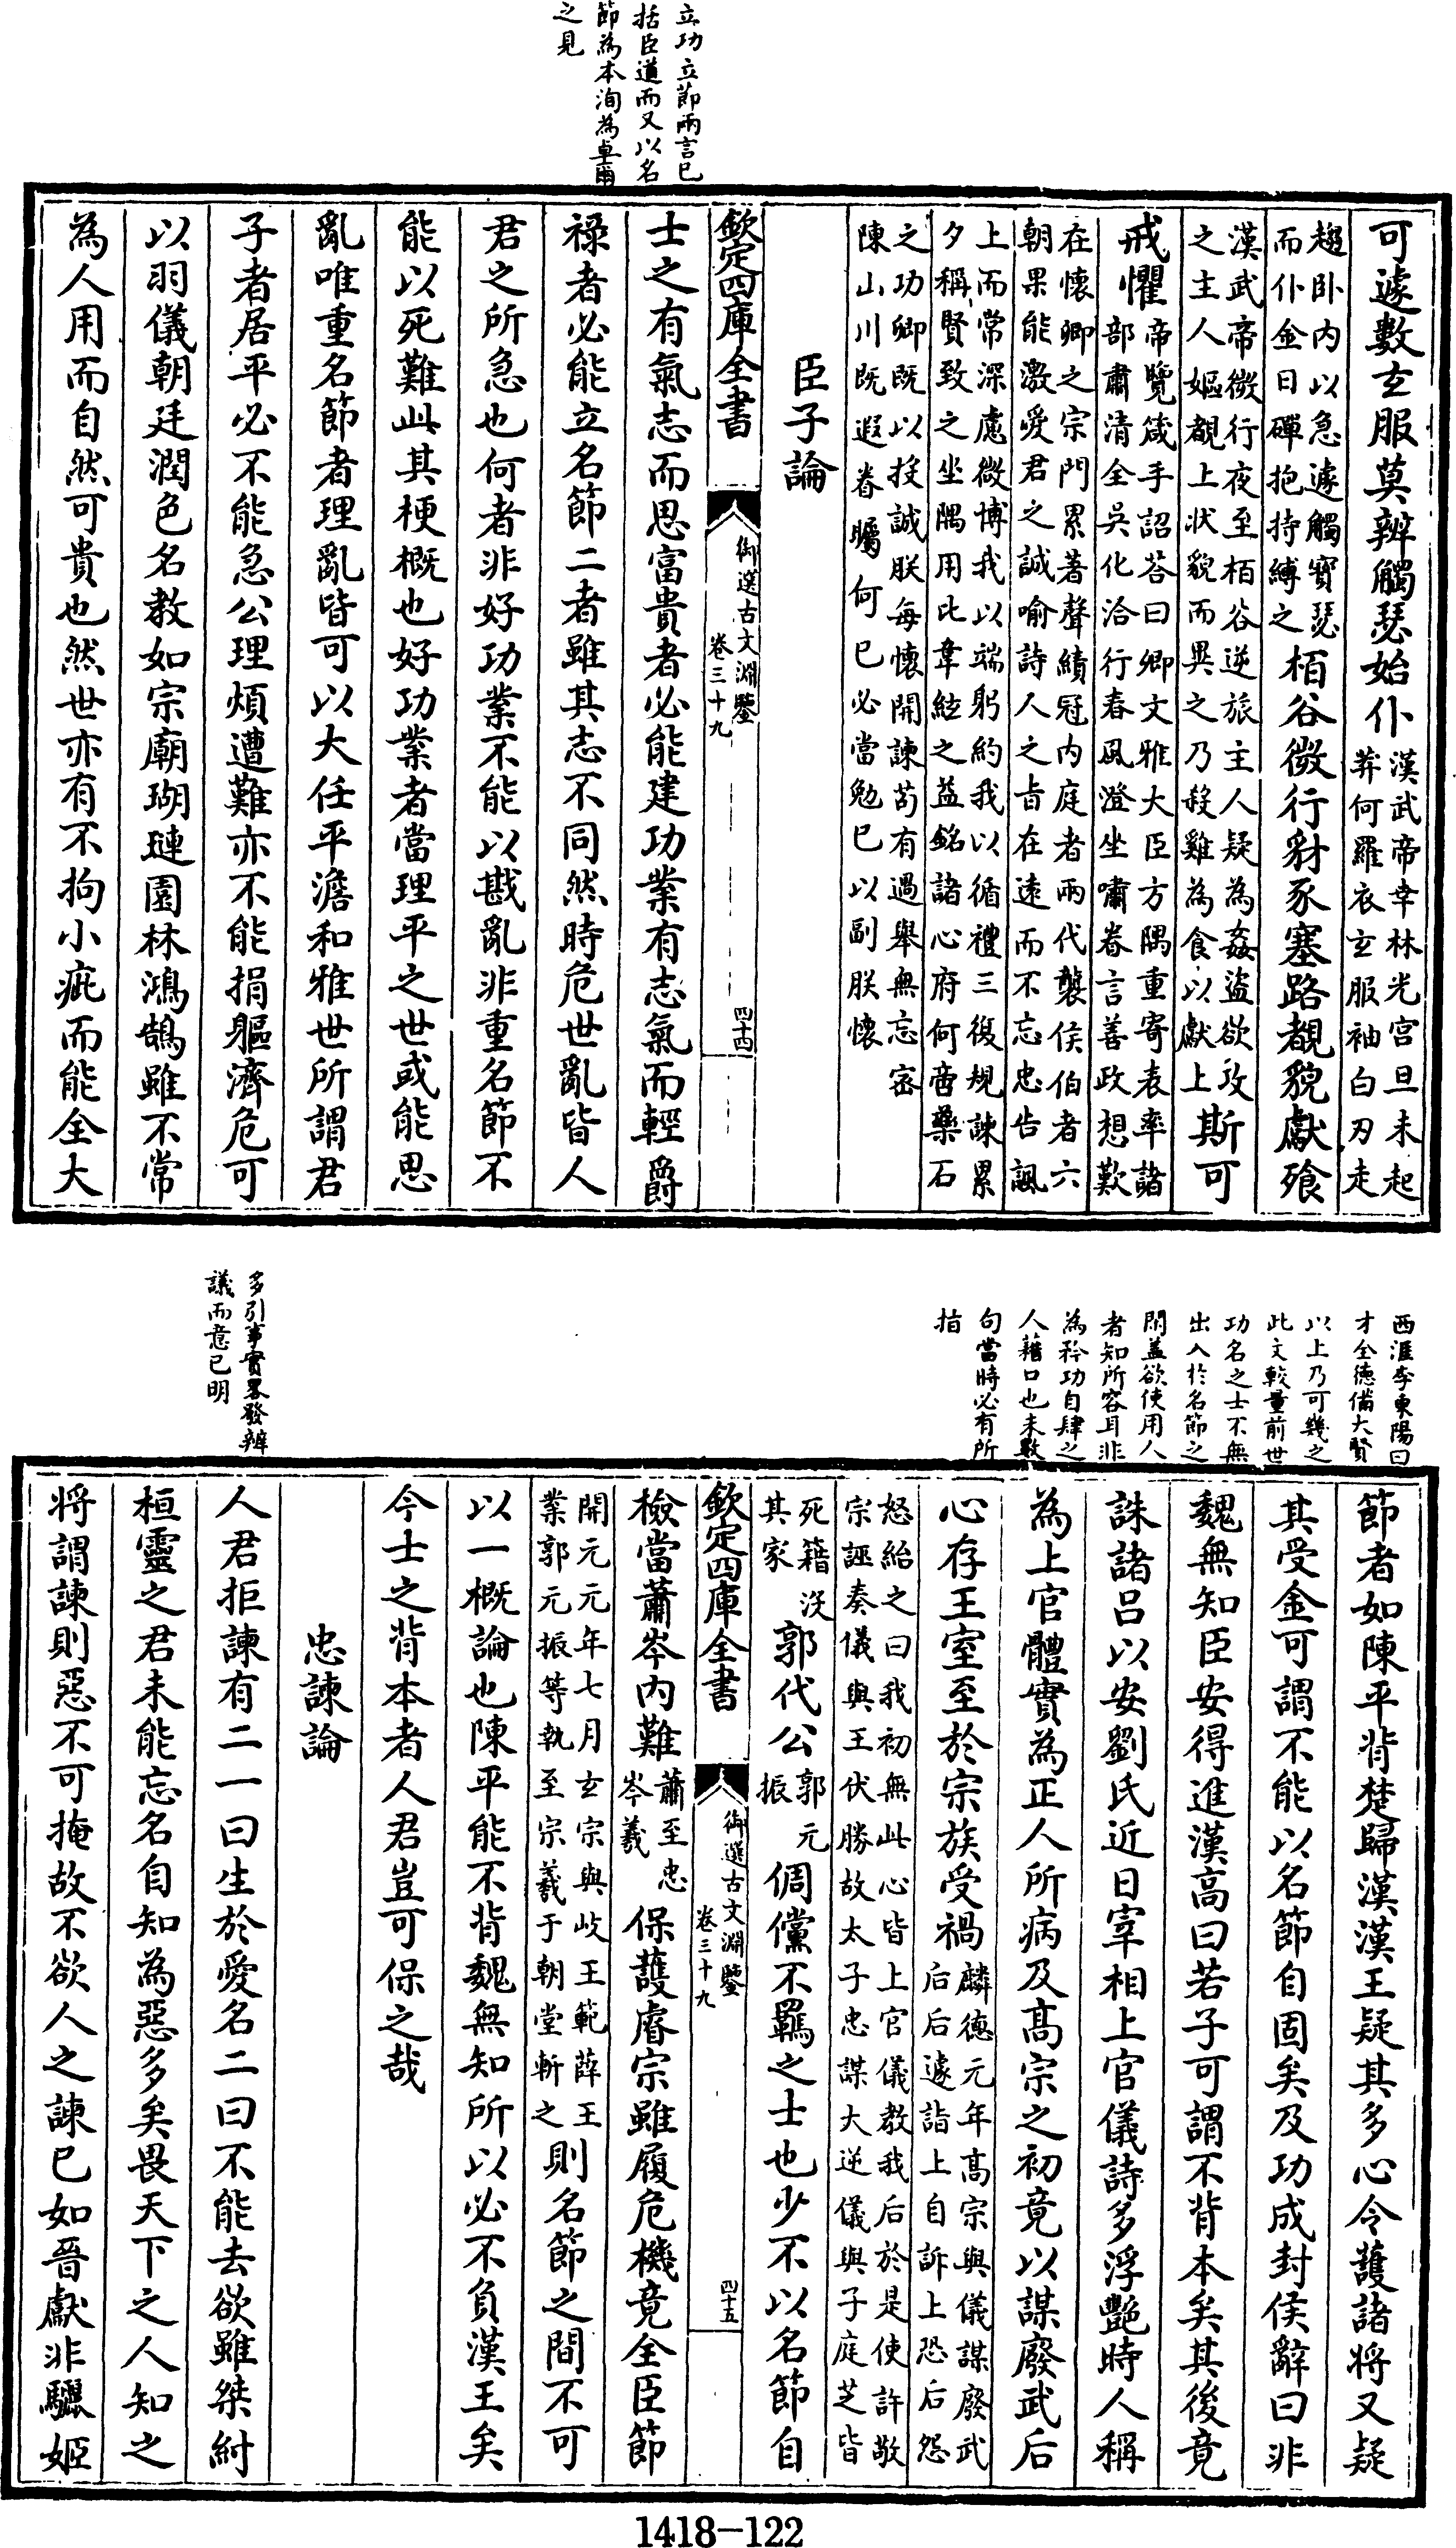 立功立節兩言已
括臣道而又以名
節為本洵為卓爾
之見
可遽數玄服莫辨觸瑟始仆漢武帝幸林光宮旦未起
莽何羅衣玄服袖白刃走
趨卧内以急遽觸寳瑟
而仆金日磾抱持縛之栢谷微行豺豕塞路覩貌獻飱
漢武帝微行夜至栢谷逆旅主人疑為姦盜欲攻
之主人嫗覩上狀貌而異之乃殺雞為食以獻上斯可
戒懼帝覽箴手詔荅曰卿文雅大臣方隅重寄表率諸
部肅清全吳化洽行春風澄坐嘯眷言善政想歎
在懷卿之宗門累著聲績冠内庭者兩代襲侯伯者六
朝果能激愛君之誠喻詩人之旨在逺而不忘忠告諷
上而常深慮微博我以端躬約我以循禮三復規諫累
夕稱賢致之坐隅用比韋絃之益銘諸心府何啻藥石
之功卿既以投誠朕每懷開諫茍有過舉無忘宻
陳山川既遐眷矚何已必當勉已以副朕懷
臣子論
欽定四庫全書
御選古文淵鑒
卷三十九
四十四
士之有氣志而思富貴者必能建功業有志氣而輕爵
禄者必能立名節二者雖其志不同然時危世亂皆人
君之所急也何者非好功業不能以戡亂非重名節不
能以死難此其梗概也好功業者當理平之世或能思
亂唯重名節者理亂皆可以大任平澹和雅世所謂君
子者居平必不能急公理煩遭難亦不能捐軀濟危可
以羽儀朝廷潤色名教如宗廟瑚璉園林鴻鵠雖不常
為人用而自然可貴也然世亦有不拘小疵而能全大
西涯李東陽曰
才全徳備大賢
以上乃可幾之
此文較量前世
功名之士不無
出入於名節之
間葢欲使用人
者知所容耳非
為矜功自肆之
人藉口也末數
句當時必有所
指
多引事實畧發辨
議而意已明
節者如陳平背楚歸漢漢王疑其多心令護諸将又疑
其受金可謂不能以名節自固矣及功成封侯辭曰非
魏無知臣安得進漢高曰若子可謂不背本矣其後竟
誅諸吕以安劉氏近日宰相上官儀詩多浮艶時人稱
為上官體實為正人所病及髙宗之初竟以謀廢武后
心存王室至於宗族受禍麟徳元年髙宗與儀謀廢武
后后遽詣上自訴上恐后怨
怒紿之曰我初無此心皆上官儀教我后於是使許敬
宗誣奏儀與王伏勝故太子忠謀大逆儀與子庭芝皆
死籍沒
其家郭代公郭元
振倜儻不羈之士也少不以名節自
欽定四庫全書
御選古文淵鑒
卷三十九
四十五
檢當蕭岑内難蕭至忠
岑羲保䕶睿宗雖履危機竟全臣節
開元元年七月玄宗與岐王範薛王
業郭元振等執至宗羲于朝堂斬之則名節之間不可
以一概論也陳平能不背魏無知所以必不負漢王矣
今士之背本者人君豈可保之哉
忠諫論
人君拒諫有二一曰生於愛名二曰不能去欲雖桀紂
桓靈之君未能忘名自知為惡多矣畏天下之人知之
将謂諫則惡不可掩故不欲人之諫已如晉獻非驪姬
1418-122